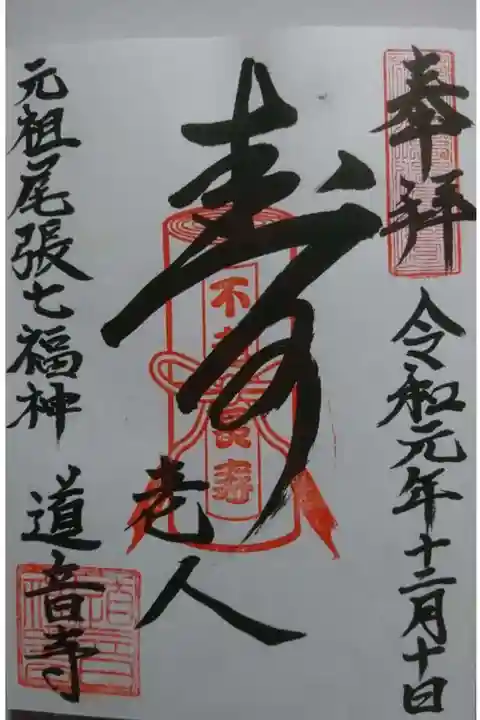 奉拝
令和元年十二月十日
寿老人
不老長寿
元祖尾張七福神 道音寺